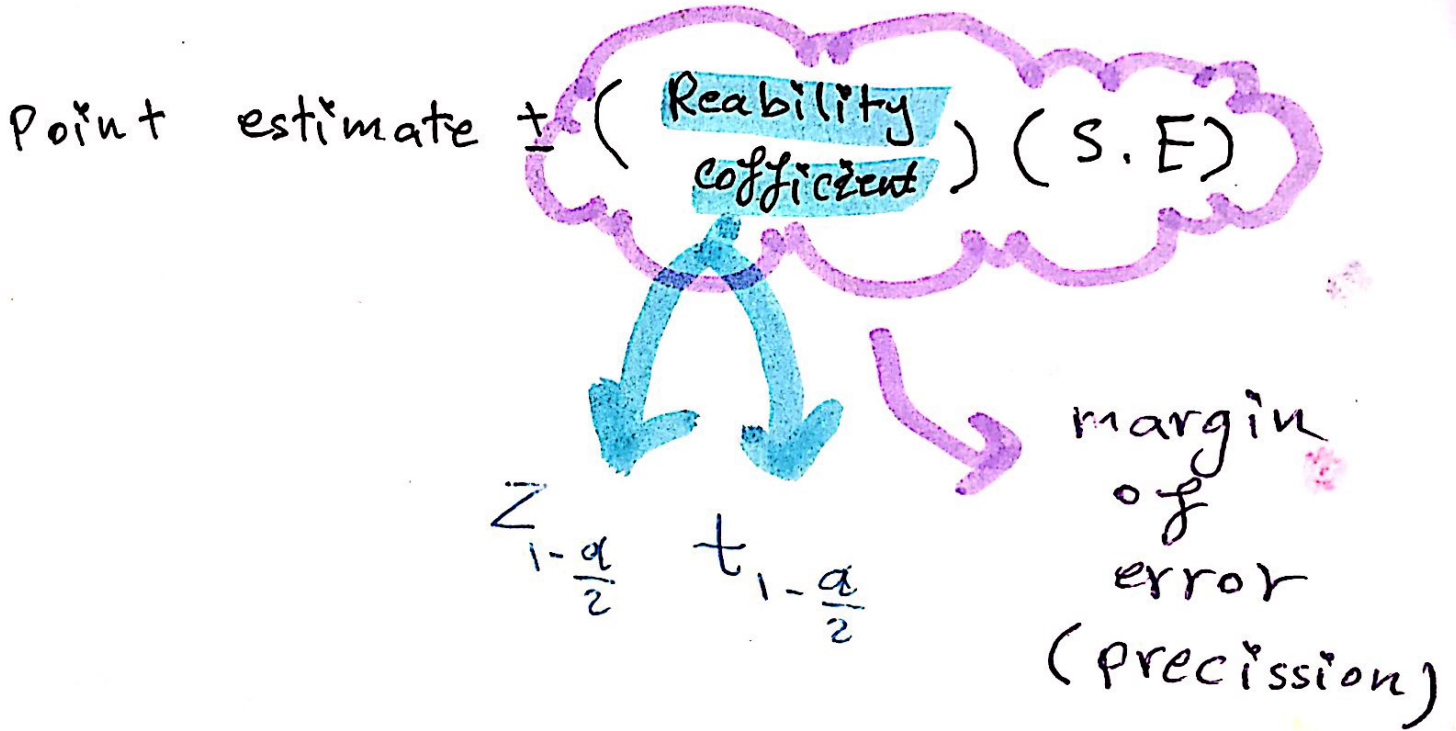 Point estimate ± ( Reability cofficient ) ( S.E )
Z 1-α/2 t 1-α/2
margin
of
error
(precission)